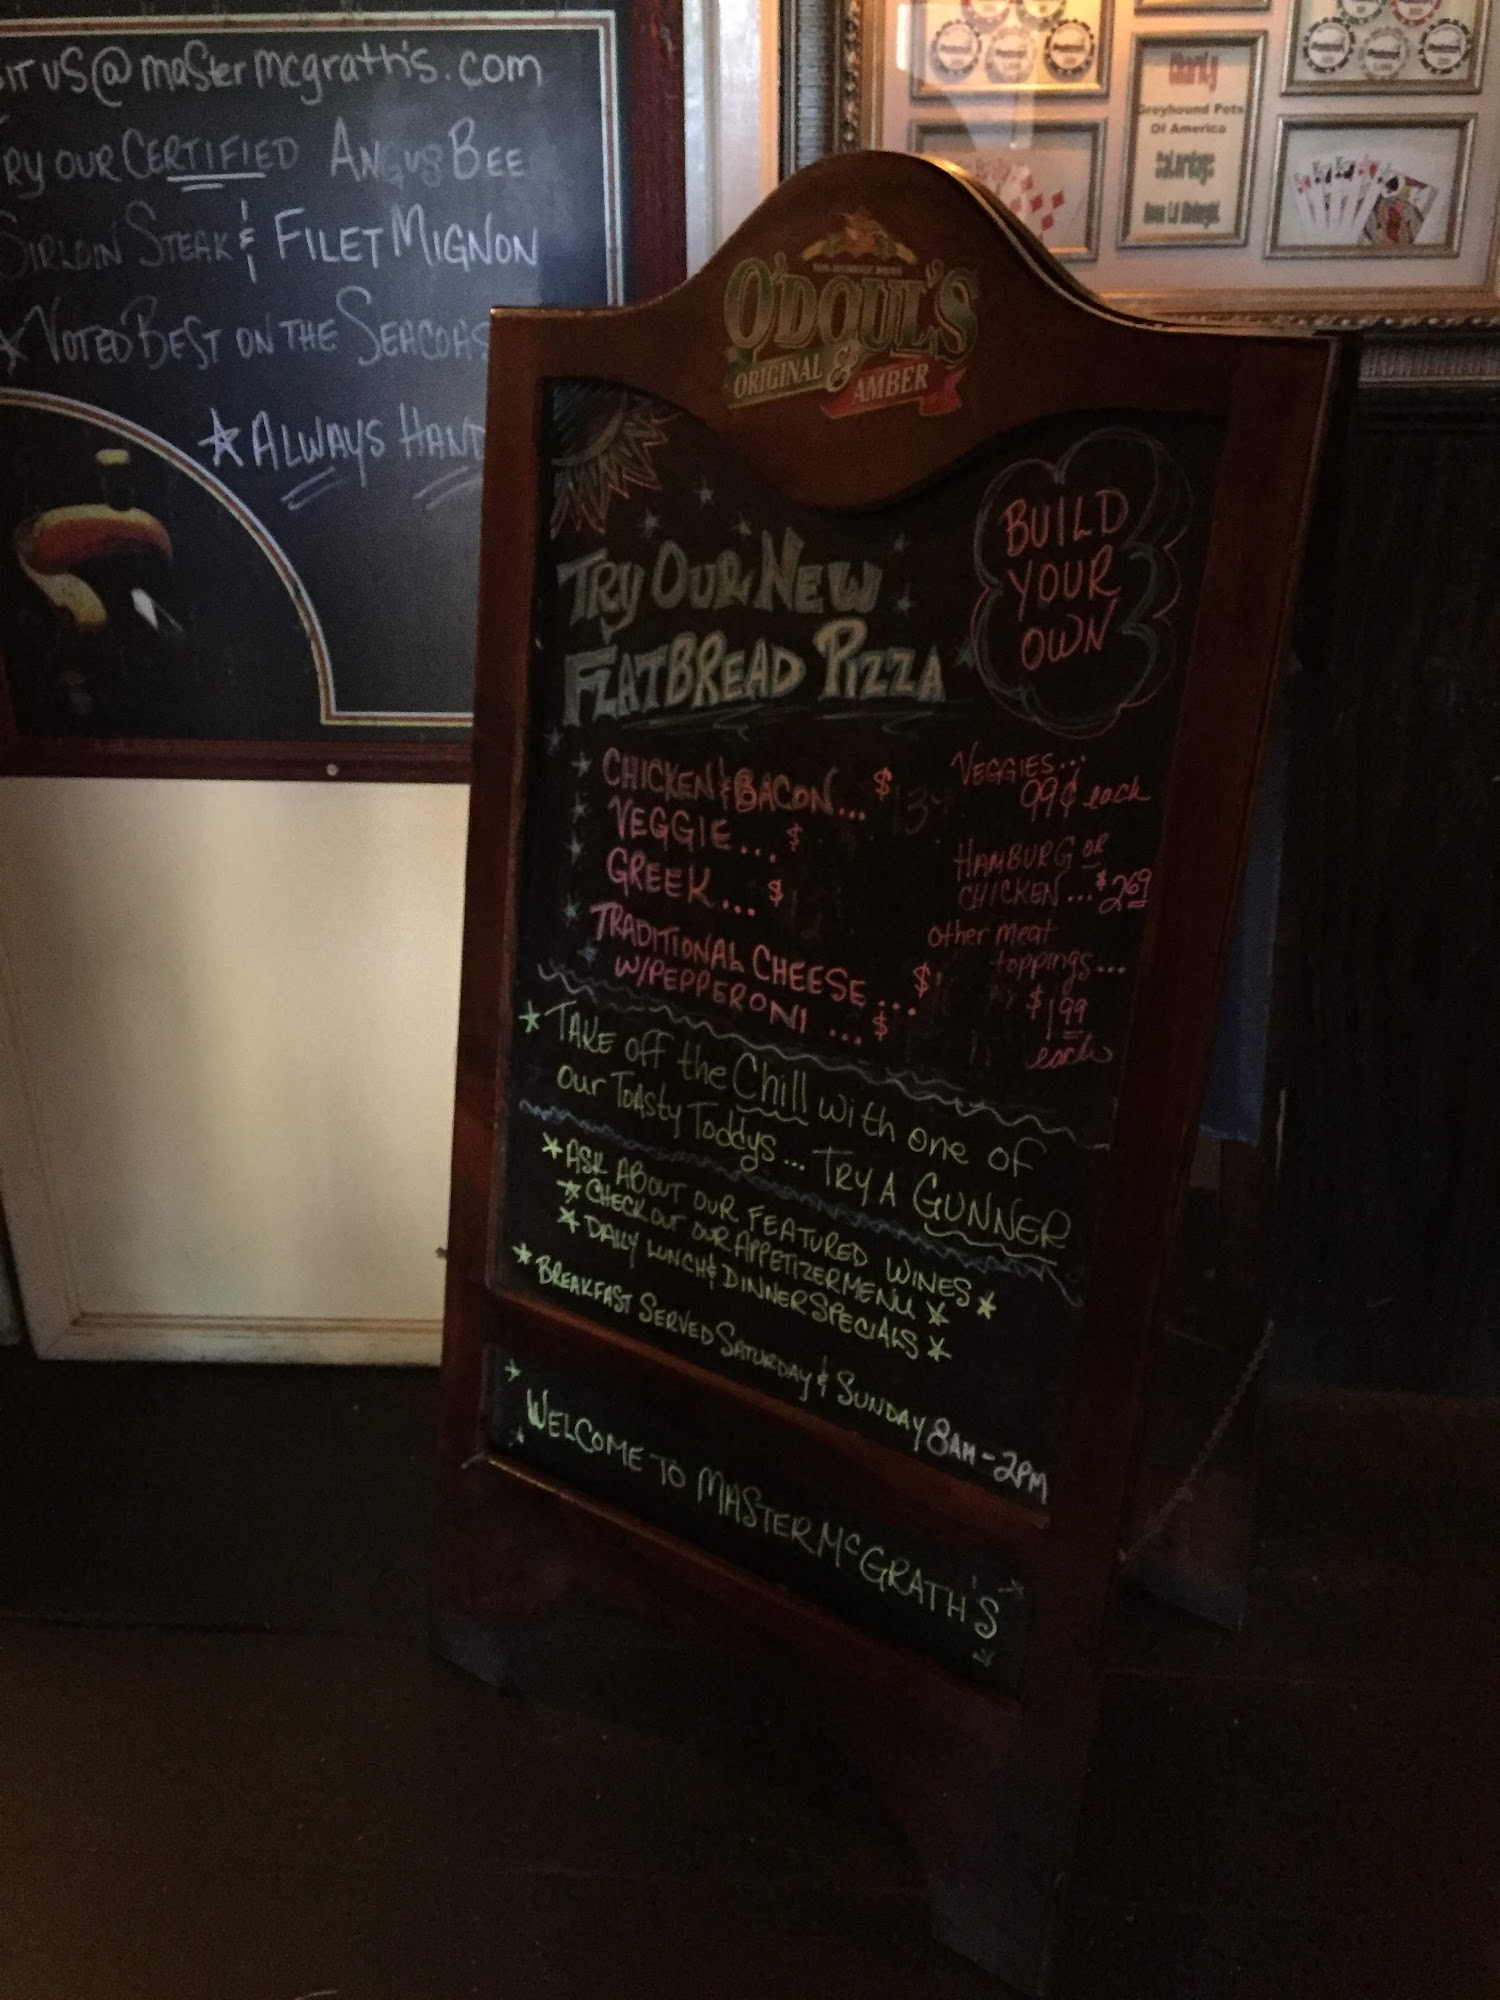 US@mastermcgrath's.com
OUR CERTIFIED ANGUS BEE
SIRLOIN STEAK & FILET MIGNON
VOTED BEST ON THE SEACOAS
ALWAYS HAND
Greyhound Pets
Of America
Saturdays
O'DOUL'S
ORIGINAL & AMBER
BUILD
YOUR
OWN
TRY OUR NEW
FLATBREAD PIZZA
CHICKEN & BACON... $13
VEGGIE... $
GREEK... $
TRADITIONAL CHEESE... $
W/PEPPERONI ... $
VEGGIES...
99¢ each
HAMBURG OR
CHICKEN... $2.69
other meat
toppings...
$1.99
each
TAKE off the Chill with one of
our Toasty Toddys... TRY A GUNNER
*ASK ABOUT OUR FEATURED WINES*
*CHECK OUT OUR APPETIZER MENU*
*DAILY LUNCH & DINNER SPECIALS*
*BREAKFAST SERVED SATURDAY & SUNDAY 8AM-2PM
WELCOME TO MASTER McGRATH'S